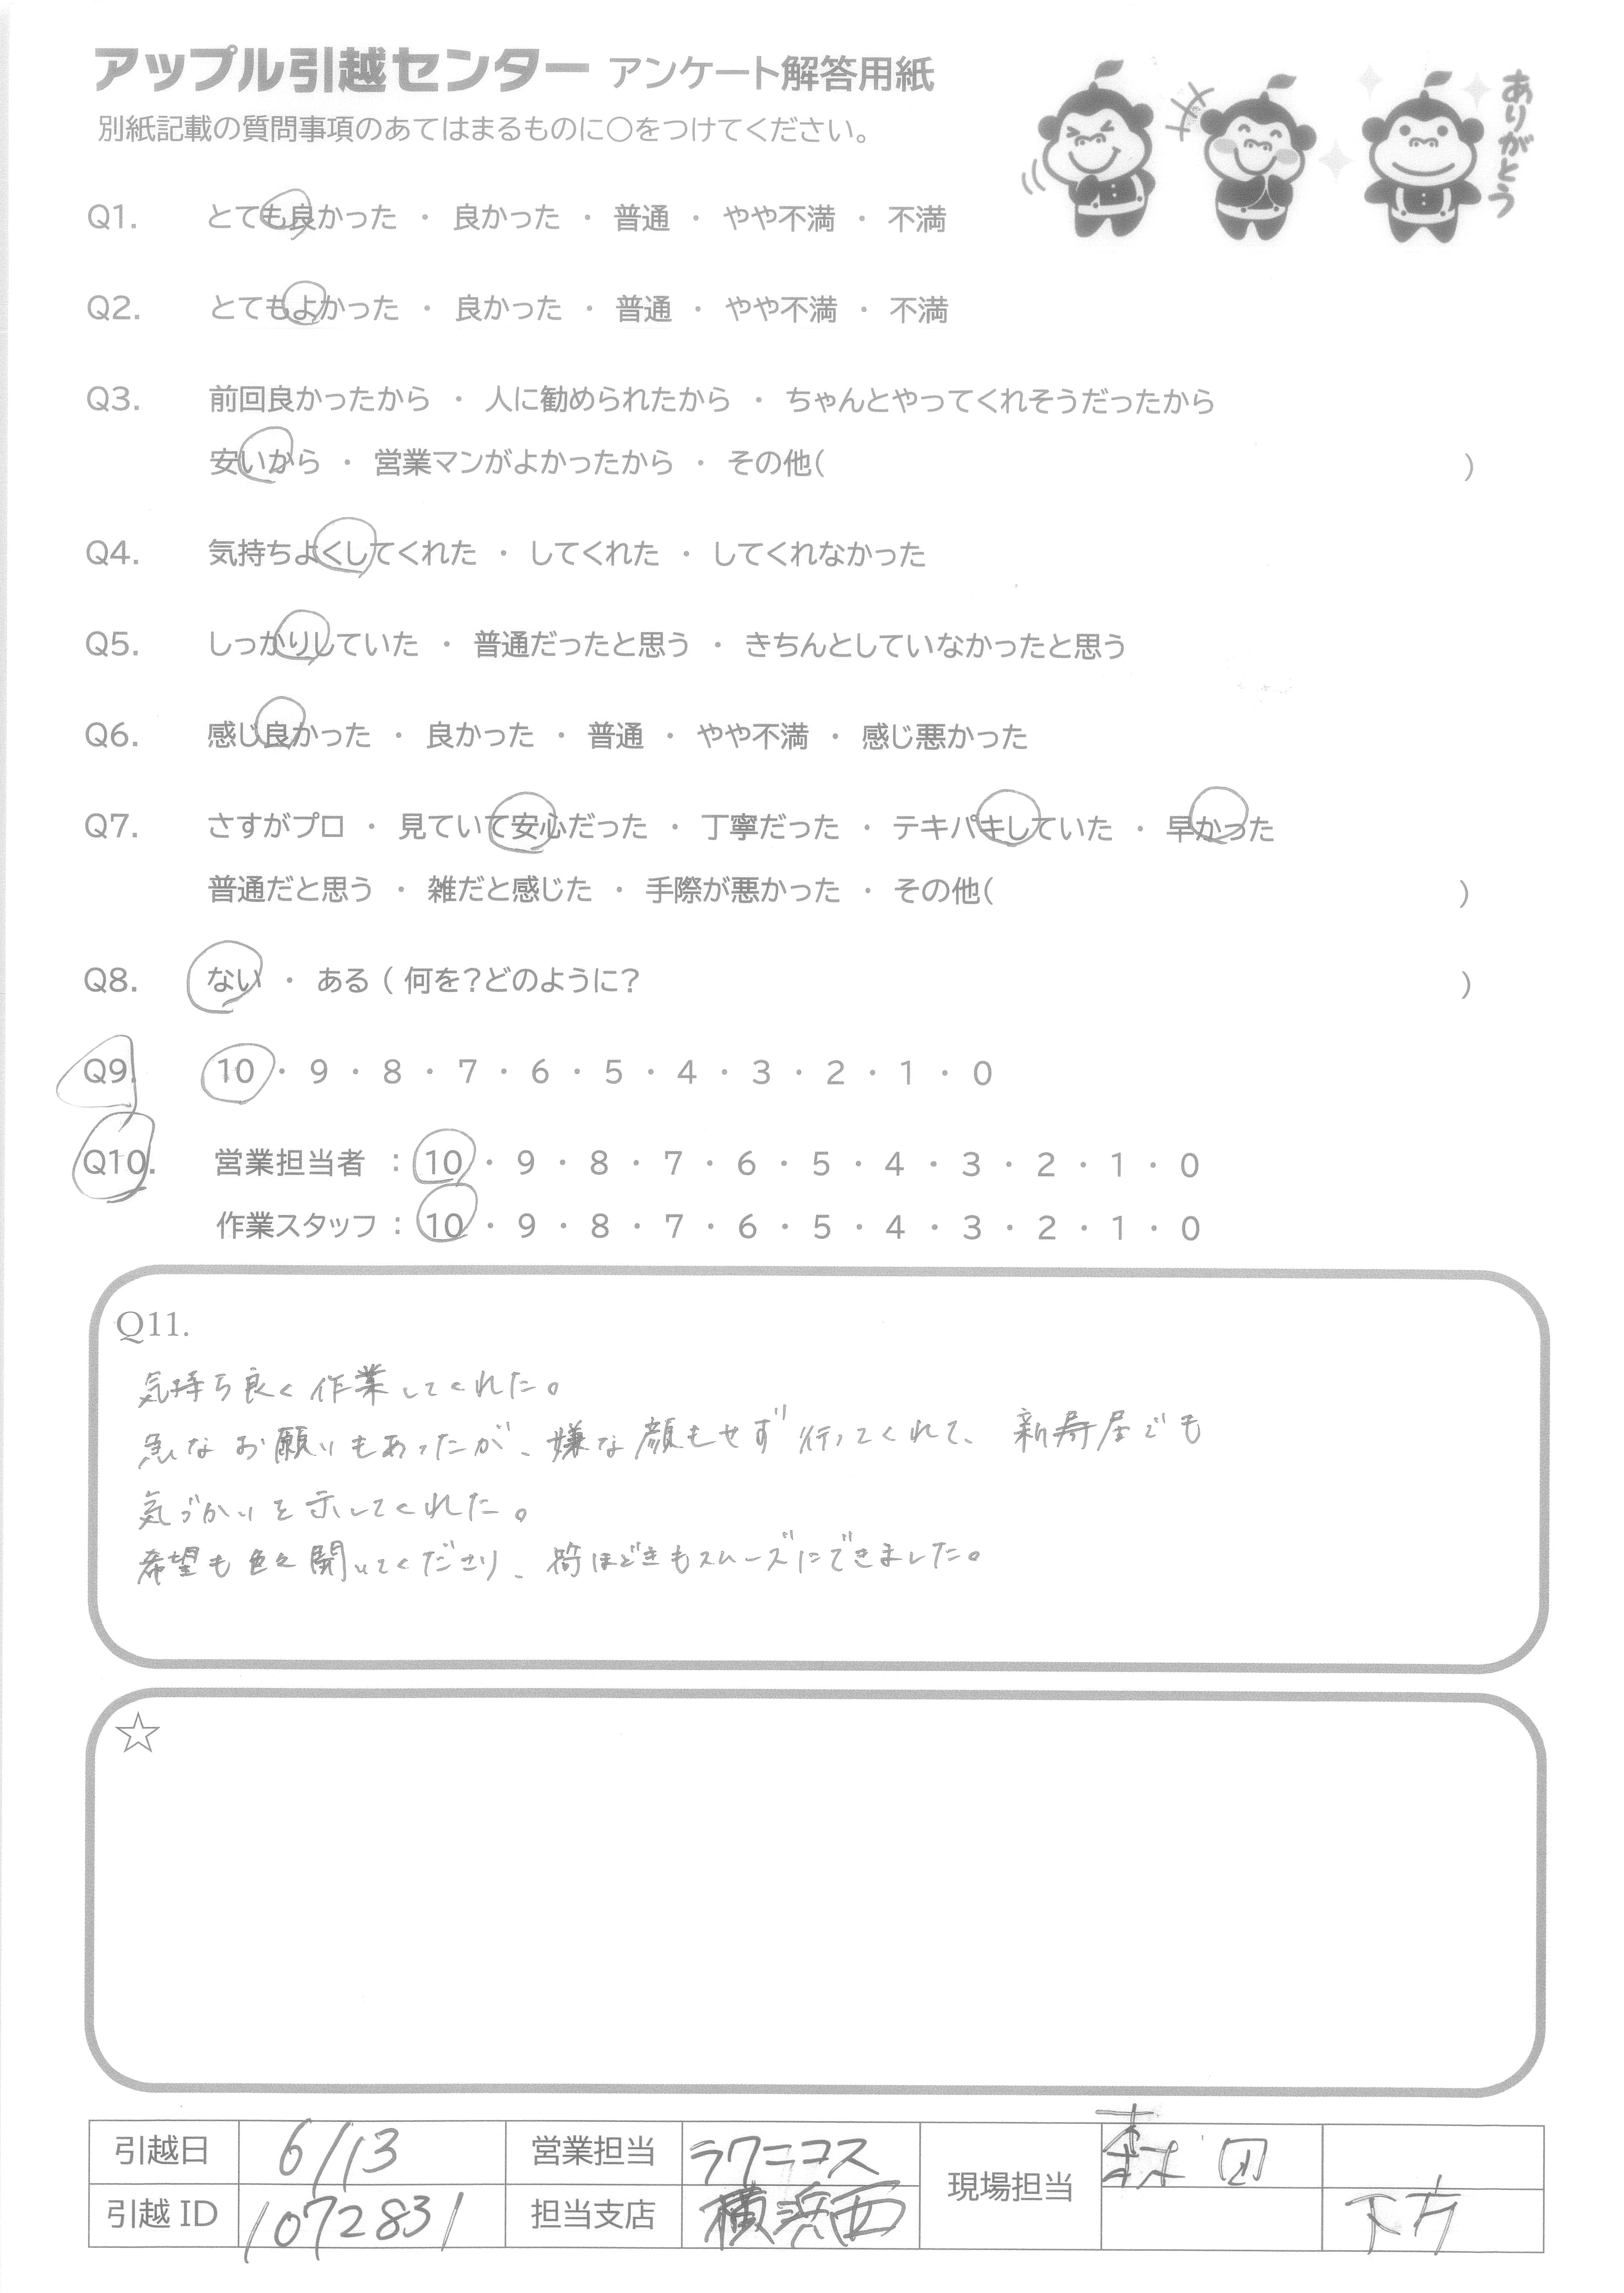 アップル引越センター アンケート解答用紙
別紙記載の質問事項のあてはまるものに○をつけてください。
ありがとう
Q1. とても良かった ・ 良かった ・ 普通 ・ やや不満 ・ 不満
Q2. とてもよかった ・ 良かった ・ 普通 ・ やや不満 ・ 不満
Q3. 前回良かったから ・ 人に勧められたから ・ ちゃんとやってくれそうだったから
安いから ・ 営業マンがよかったから ・ その他( )
Q4. 気持ちよくしてくれた ・ してくれた ・ してくれなかった
Q5. しっかりしていた ・ 普通だったと思う ・ きちんとしていなかったと思う
Q6. 感じ良かった ・ 良かった ・ 普通 ・ やや不満 ・ 感じ悪かった
Q7. さすがプロ ・ 見ていて安心だった ・ 丁寧だった ・ テキパキしていた ・ 早かった
普通だと思う ・ 雑だと感じた ・ 手際が悪かった ・ その他( )
Q8. ない ・ ある ( 何を?どのように? )
Q9. 10 ・ 9 ・ 8 ・ 7 ・ 6 ・ 5 ・ 4 ・ 3 ・ 2 ・ 1 ・ 0
Q10. 営業担当者 : 10 ・ 9 ・ 8 ・ 7 ・ 6 ・ 5 ・ 4 ・ 3 ・ 2 ・ 1 ・ 0
作業スタッフ : 10 ・ 9 ・ 8 ・ 7 ・ 6 ・ 5 ・ 4 ・ 3 ・ 2 ・ 1 ・ 0
Q11.
気持ち良く作業してくれた。
急なお願いもあったが、嫌な顔もせず行ってくれて、新寿居でも
気づかいを示してくれた。
希望も色々聞いてくださり、荷ほどきもスムーズにできました。
☆
引越日 6/13 営業担当 ラワニコス 現場担当 森田
引越 ID 1072831 担当支店 横浜西 下方